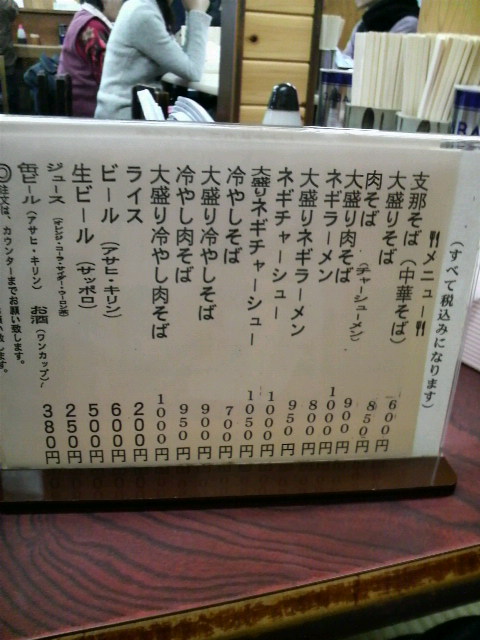 （すべて税込みになります）
メニュー
支那そば（中華そば） 600円
大盛りそば 850円
肉そば（チャーシューメン） 900円
大盛り肉そば 1000円
ネギラーメン 800円
大盛りネギラーメン 950円
ネギチャーシュー 1000円
大盛りネギチャーシュー 1050円
冷やしそば 700円
大盛り冷やしそば 900円
冷やし肉そば 950円
大盛り冷やし肉そば 1000円
ライス 200円
ビール（アサヒ・キリン） 600円
生ビール（サッポロ） 500円
ジュース（オレンジ・コーラ・サイダー・ウーロン茶） 250円
缶ビール（アサヒ・キリン） お酒（ワンカップ） 380円
◎注文は、カウンターまでお願い致します。